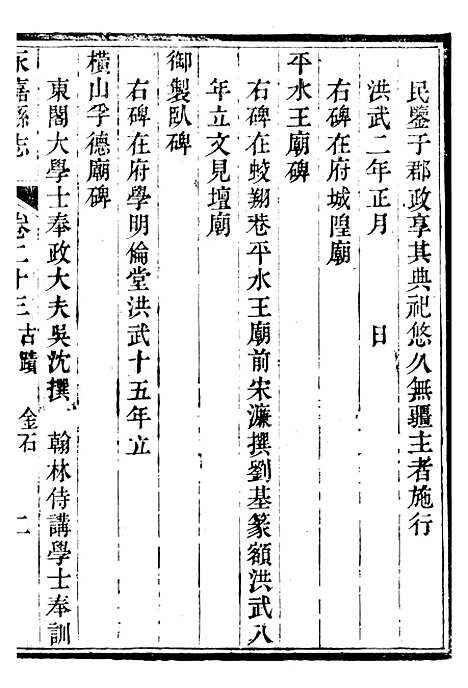 民鑒于郡政享其典祀悠久無疆主者施行
洪武二年正月　日
右碑在府城隍廟
平水王廟碑
右碑在蛟翔巷平水王廟前宋濂撰劉基篆額洪武八
年立文見壇廟
御製臥碑
右碑在府學明倫堂洪武十五年立
橫山孚德廟碑
東閣大學士奉政大夫吳沈撰　翰林侍講學士奉訓
永嘉縣志　卷二十三古蹟　金石　二